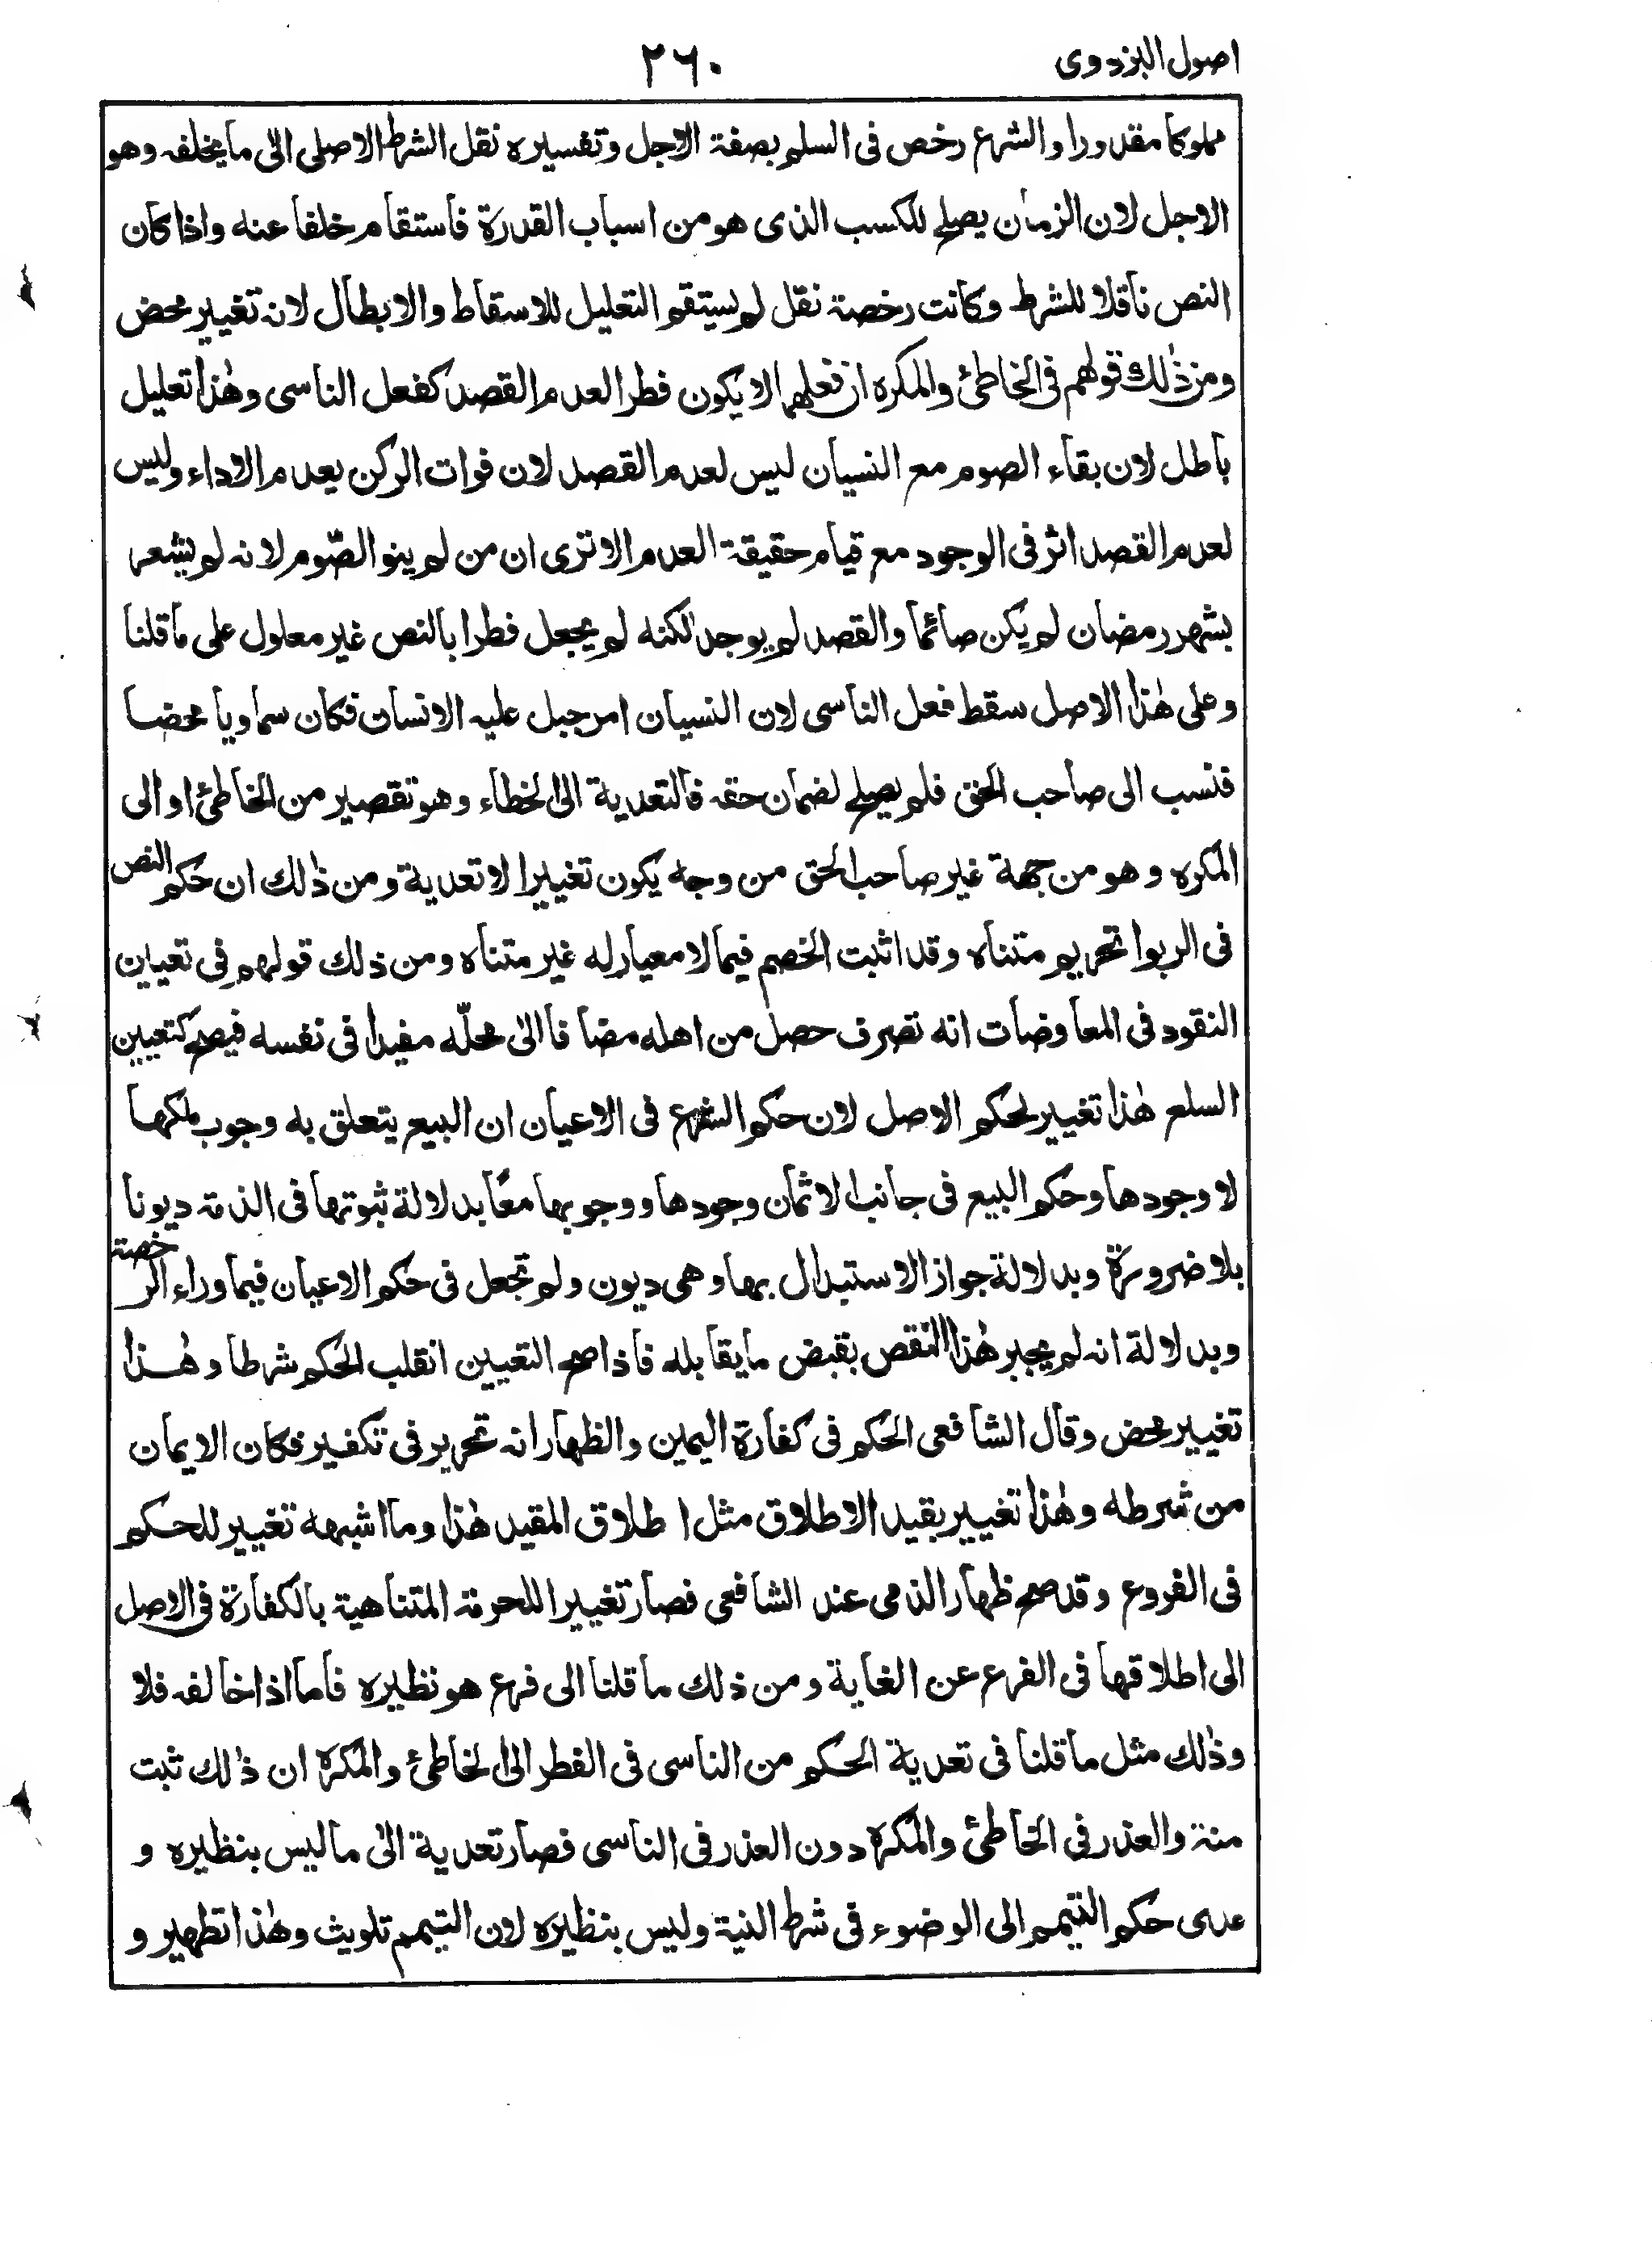 اصول البزدوى
٢٦٠
مملوكا مقدورا والشرع رخص فى السلم بصفة الاجل وتفسيره نقل الشرط الاصلى الى ما يخلفه وهو
الاجل لان الزمان يصلح للكسب الذى هو من اسباب القدرة فاستقام خلفا عنه واذا كان
النص ناقلا للشرط وكانت رخصة نقل لم يستقم التعليل للاسقاط والابطال لانه تغيير محض
ومن ذلك قولهم فى الخاطئ والمكره ان فعلهما لا يكون فطرا لعدم القصد كفعل الناسى وهذا تعليل
باطل لان بقاء الصوم مع النسيان ليس لعدم القصد لان فوات الركن يعدم الاداء وليس
لعدم القصد اثر فى الوجود مع قيام حقيقة العدم الا ترى ان من لم ينو الصّوم لانه لم يشعر
بشهر رمضان لم يكن صائما والقصد لم يوجد لكنه لم يجعل فطرا بالنص غير معلول على ما قلنا
وعلى هذا الاصل سقط فعل الناسى لان النسيان امر جبل عليه الانسان فكان سماويا محضا
فنسب الى صاحب الحق فلم يصلح لضمان حقه فالتعدية الى الخطاء وهو تقصير من الخاطئ او الى
المكره وهو من جهة غير صاحب الحق من وجه يكون تغييرا لا تعدية ومن ذلك ان حكم النص
فى الربوا تحريم متناه وقد اثبت الخصم فيما لا معيار له غير متناه ومن ذلك قولهم فى تعيين
النقود فى المعاوضات انه تصرف حصل من اهله مضافا الى محلّه مفيدا فى نفسه فيصح كتعيين
السلع هذا تغيير لحكم الاصل لان حكم الشرع فى الاعيان ان البيع يتعلق به وجوب ملكها
لا وجودها وحكم البيع فى جانب الاثمان وجودها ووجوبها معًا بدلالة ثبوتها فى الذمة ديونا
بلا ضرورة وبدلالة جواز الاستبدال بها وهى ديون ولم تجعل فى حكم الاعيان فيما وراء الرخصة
وبدلالة انه لم يجبر هذا النقص بقبض ما يقابله فاذا صح التعيين انقلب الحكم شرطا وهذا
تغيير محض وقال الشافعى الحكم فى كفارة اليمين والظهار انه تحرير فى تكفير فكان الايمان
من شرطه وهذا تغيير بقيد الاطلاق مثل اطلاق المقيد هذا وما اشبهه تغيير للحكم
فى الفروع وقد صح ظهار الذمى عند الشافعى فصار تغييرا للحرمة المتناهية بالكفارة فى الاصل
الى اطلاقها فى الفرع عن الغاية ومن ذلك ما قلنا الى فرع هو نظيره فاما اذا خالفه فلا
وذلك مثل ما قلنا فى تعدية الحكم من الناسى فى الفطر الى الخاطئ والمكره ان ذلك ثبت
منة والعذر فى الخاطئ والمكره دون العذر فى الناسى فصار تعدية الى ما ليس بنظيره و
عدى حكم التيمم الى الوضوء فى شرط النية وليس بنظيره لان التيمم تلويث وهذا تطهير و